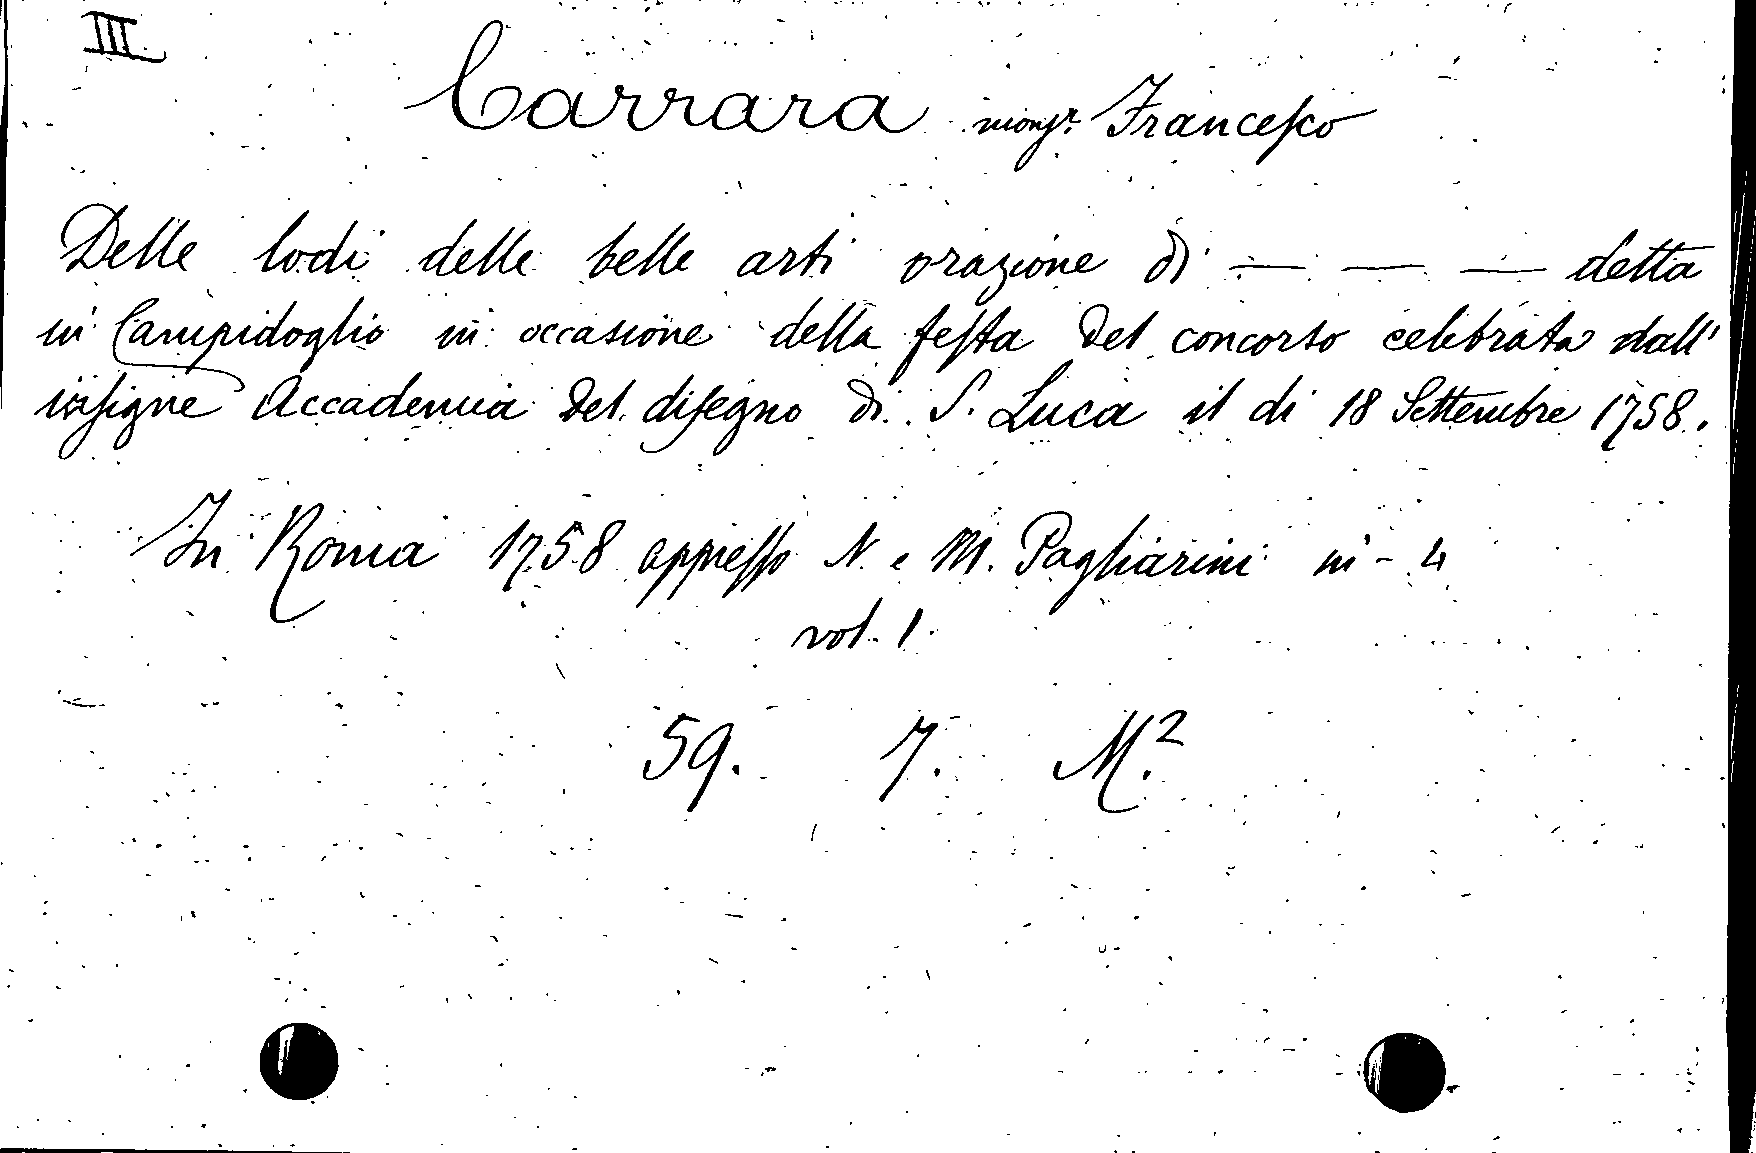 III.
Carrara monsr. Francesco
Delle lodi delle belle arti orazione di — — — detta
in Campidoglio in occasione della festa del concorso celebrata dall'
insigne Accademia del disegno di S. Luca il di 18 Settembre 1758.
In Roma 1758 appresso N. e M. Pagliarini in-4
vol. 1.
59. 7. M.2